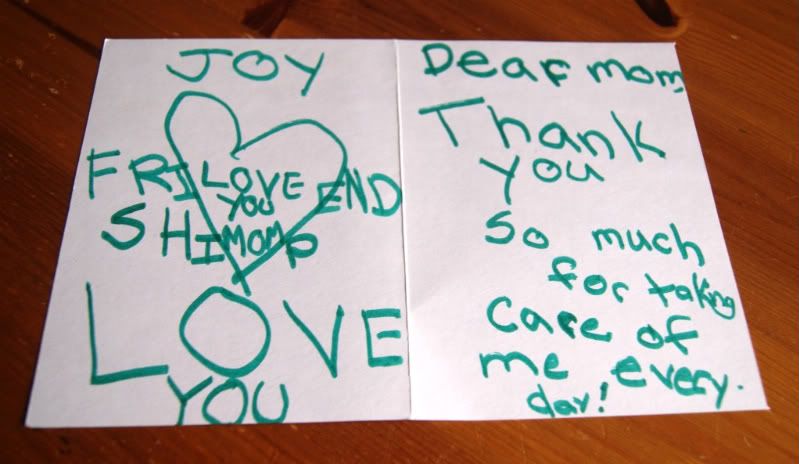 JOY
FRI LOVE END
YOU
SHI MOM P
LOVE
YOU
Dear mom
Thank
you
So much
for taking
care of
me every.
day!